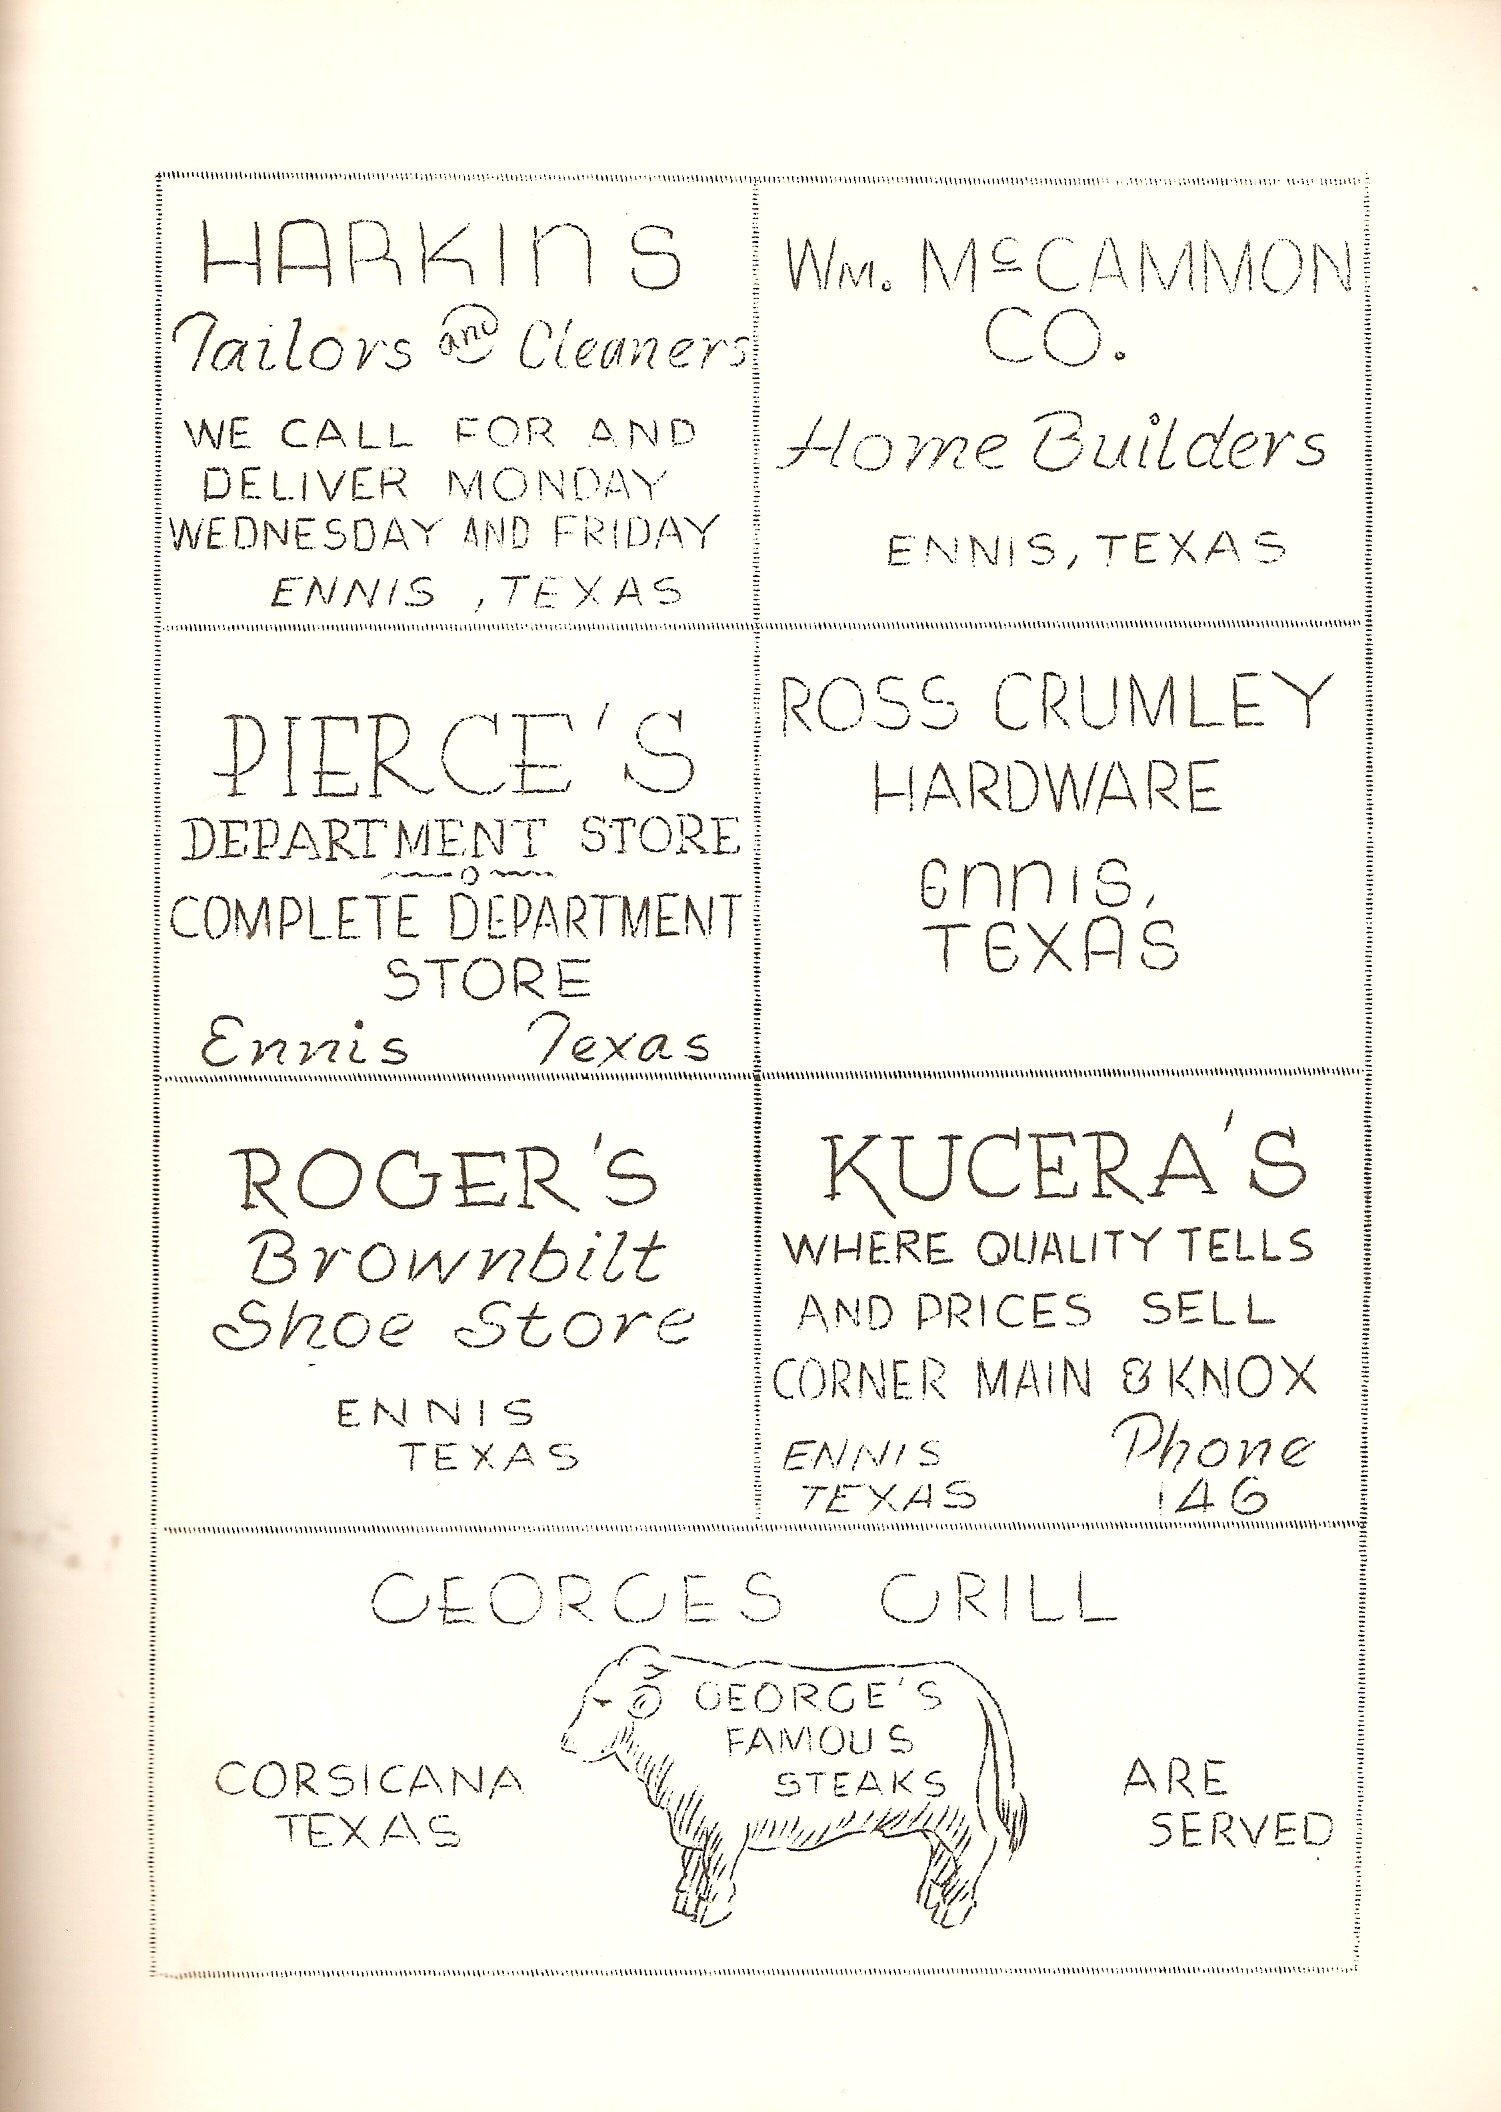 HARKINS
Tailors and Cleaners
WE CALL FOR AND
DELIVER MONDAY
WEDNESDAY AND FRIDAY
ENNIS, TEXAS
WM. McCAMMON
CO.
Home Builders
ENNIS, TEXAS
PIERCE'S
DEPARTMENT STORE
COMPLETE DEPARTMENT
STORE
Ennis Texas
ROSS CRUMLEY
HARDWARE
ENNIS,
TEXAS
ROGER'S
Brownbilt
Shoe Store
ENNIS
TEXAS
KUCERA'S
WHERE QUALITY TELLS
AND PRICES SELL
CORNER MAIN & KNOX
ENNIS
TEXAS
Phone
146
GEORGES GRILL
GEORGE'S
FAMOUS
STEAKS
CORSICANA
TEXAS
ARE
SERVED